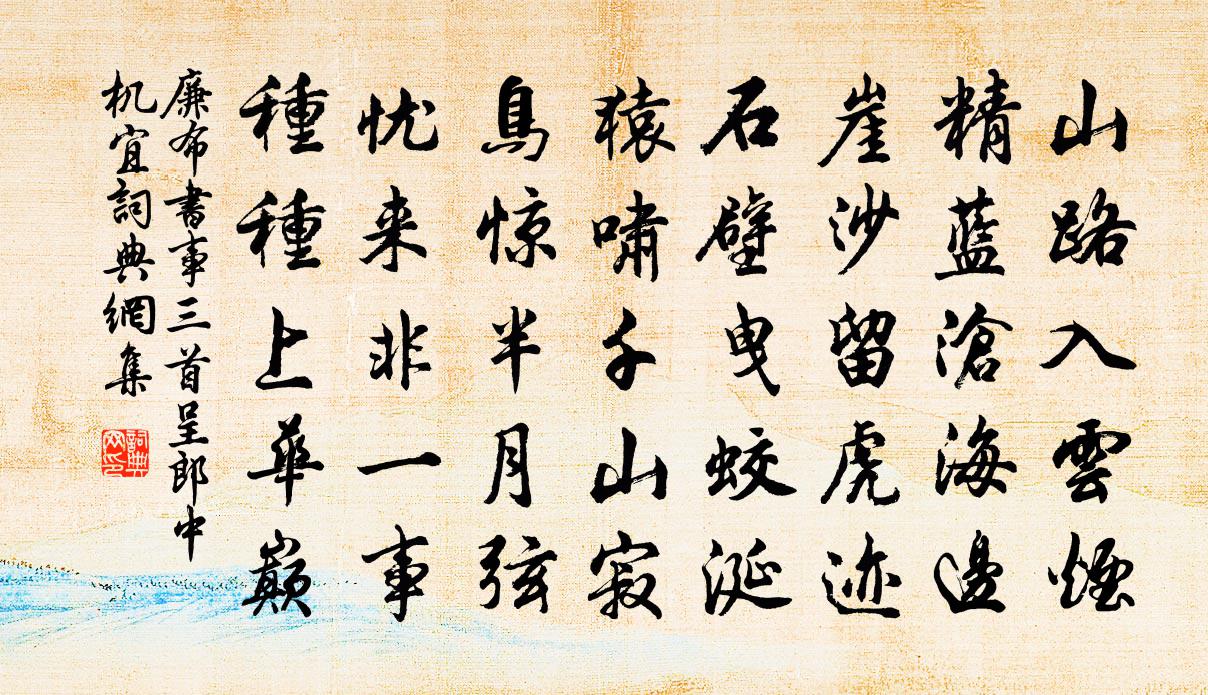 山路入雲煙
精藍滄海邊
崖沙留虎迹
石壁曳蛟涎
猿嘯千山寂
鳥惊半月弦
忧来非一事
種種上華巔
廉布書事三首呈郎中
机宜詞典網集
詞典網印